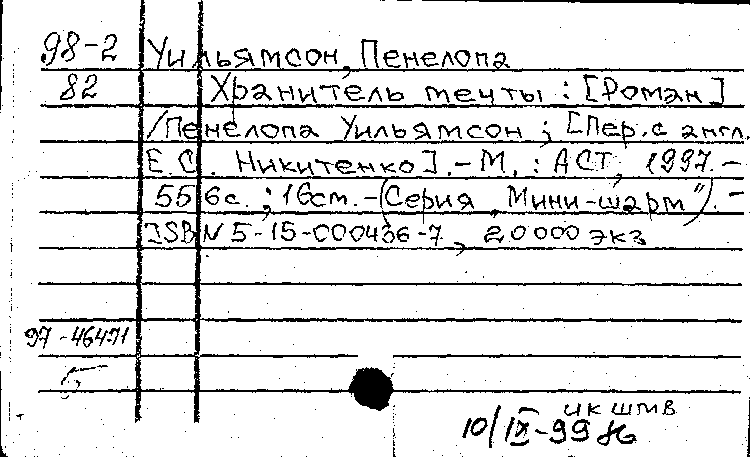 98-2 Уильямсон, Пенелопа
82 Хранитель мечты : [Роман]
/Пенелопа Уильямсон ; [Пер. с англ.
Е.С. Никитенко]. - М. : АСТ, 1997. -
556с. ; 16см. - (Серия „Мини-шарм"). -
ISBN 5-15-000436-7, 20000 экз
97-46471
5
ик штв
10/IX-99